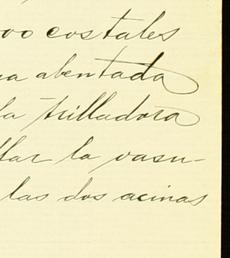 00 costales
a abentada
la trilladora
llar la vasu-
las dos acinas